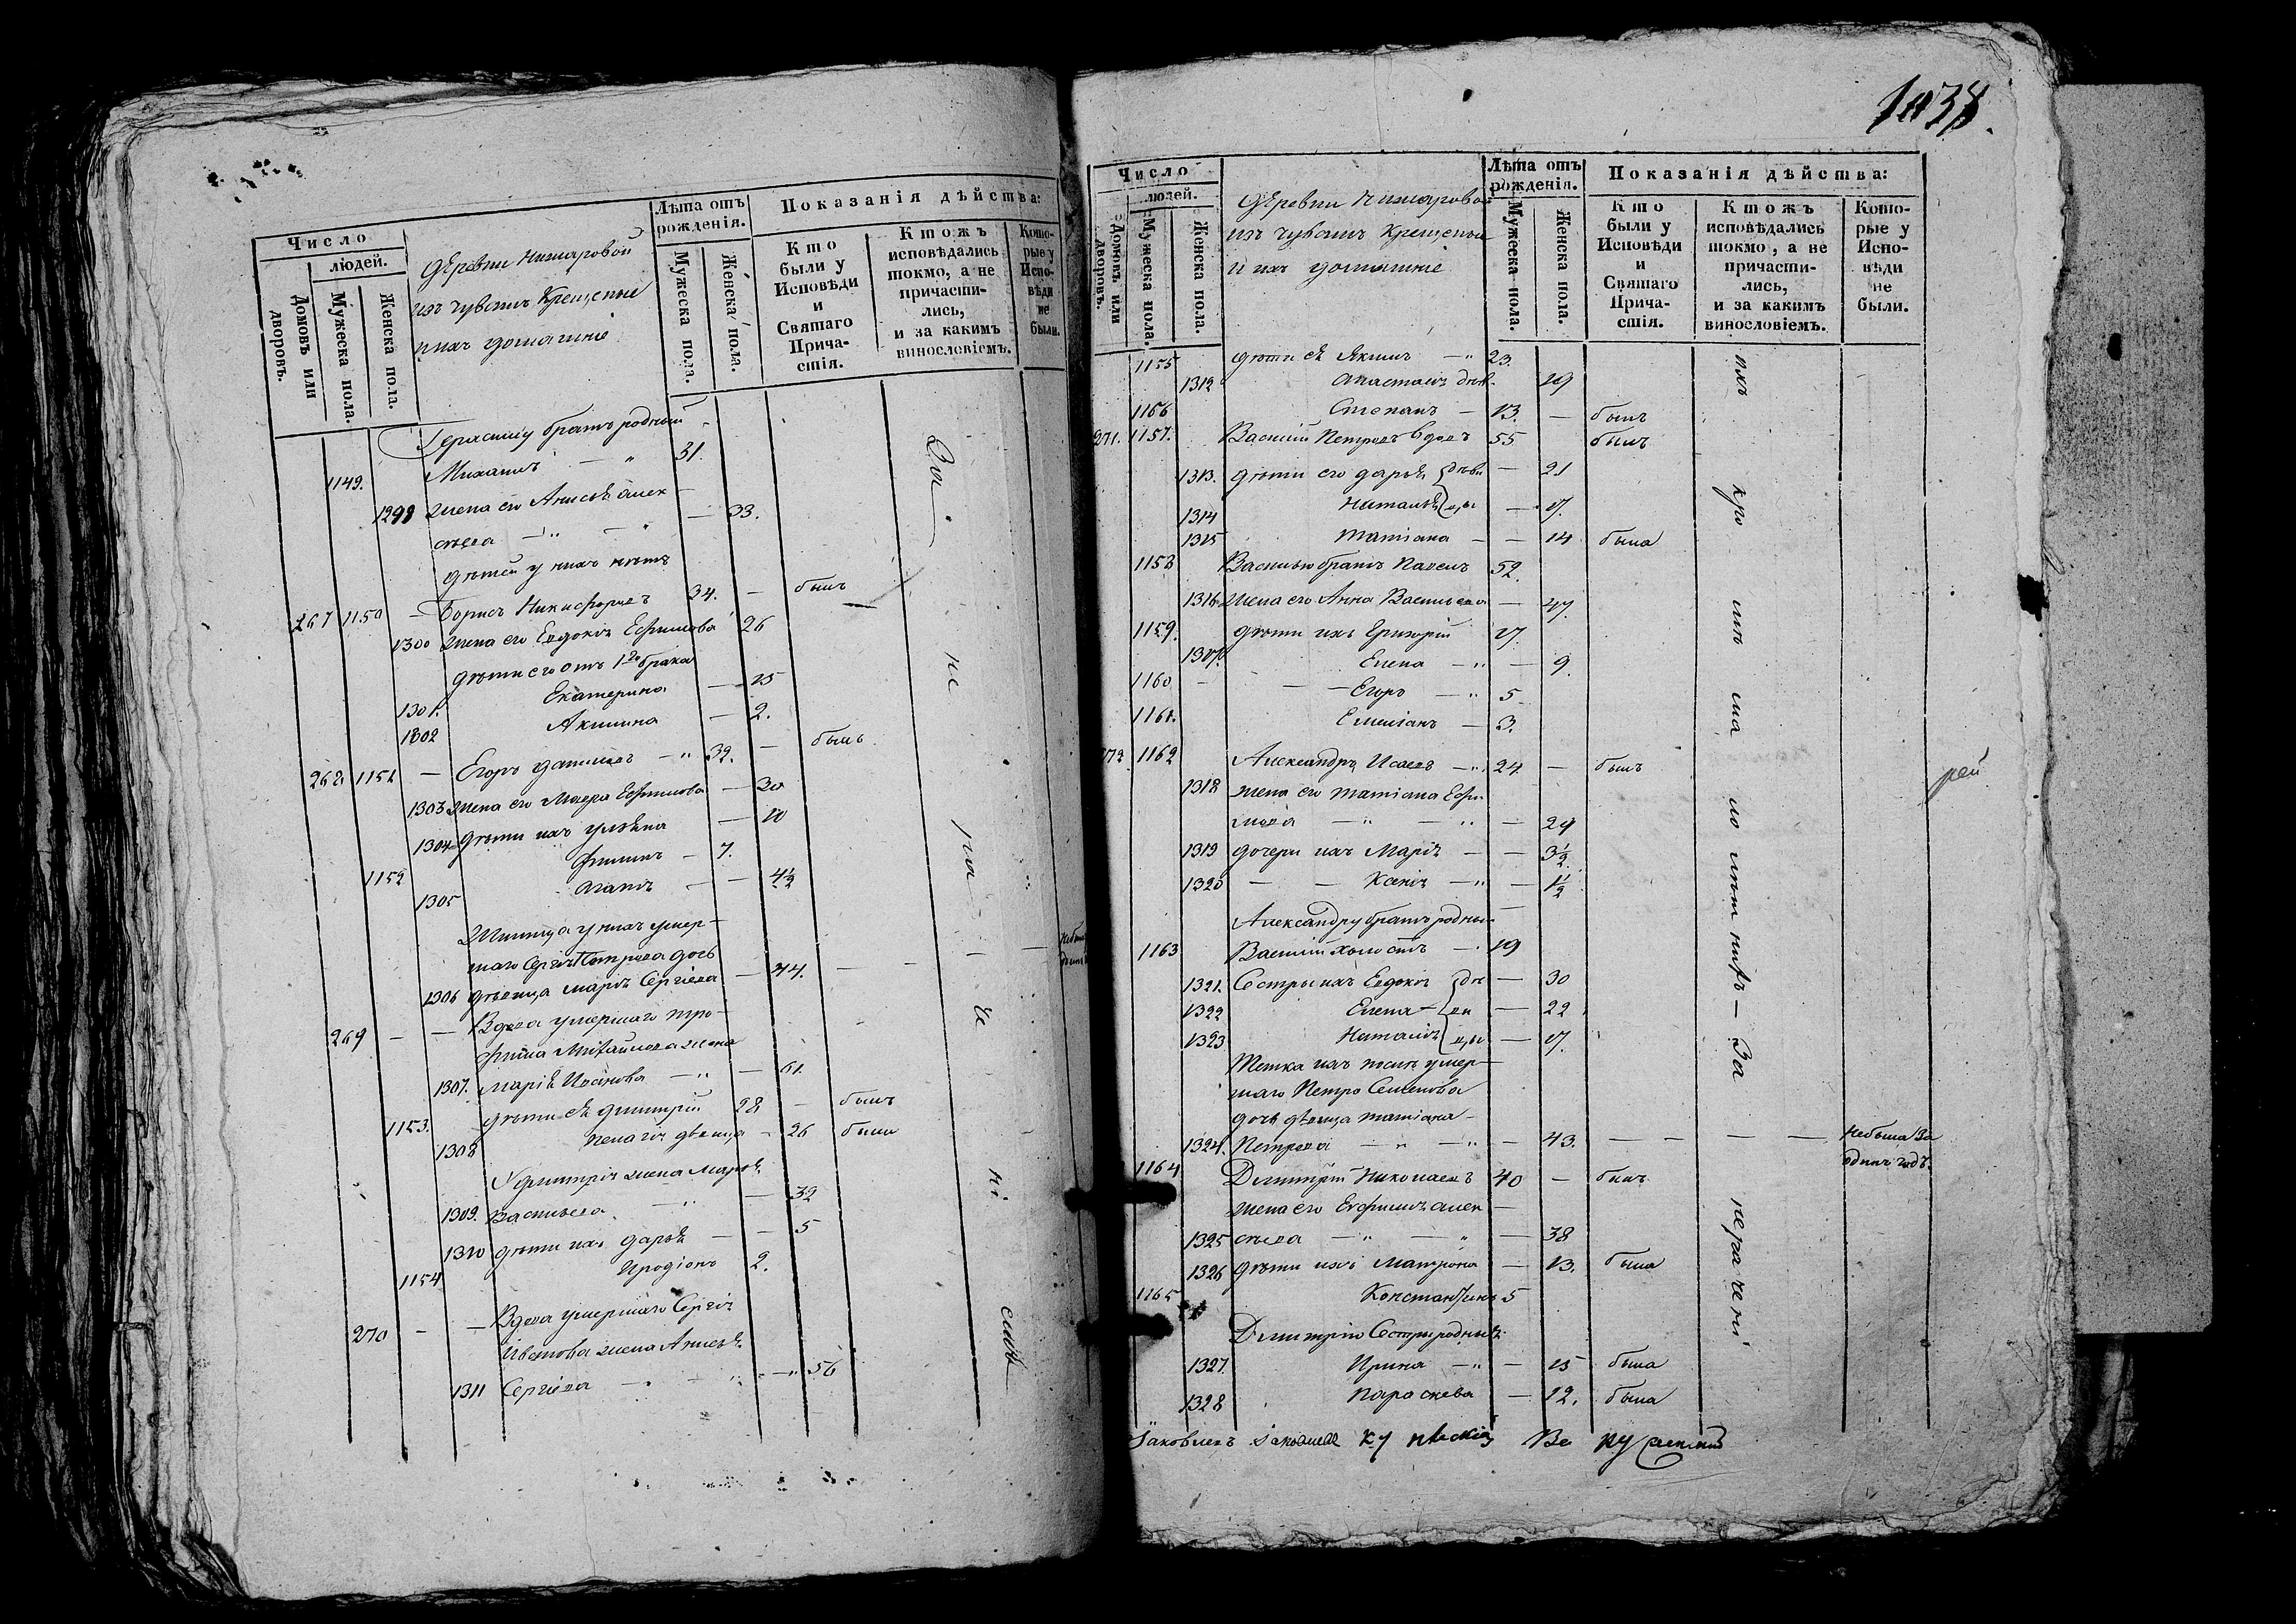 Число
людей.
Домовъ или дворовъ.
Мужеска пола.
Женска пола.
Деревни
изъ чувашъ Крещеные
и ихъ домашніе
Лѣта отъ рожденія.
Мужеска пола.
Женска пола.
Показанія дѣйства:
Кто были у Исповѣди и Святаго Причастія.
Ктожъ исповѣдались токмо, а не причастились, и за какимъ винословіемъ.
Которые у Исповѣди не были.
Герасиму братъ родный
1149. Михаилъ — " 31.
1299 жена его Анисья Алек
сѣева — " — " — 33.
дѣтей у нихъ нѣтъ
267 1150 — Борисъ Никифоровъ 34. — былъ
1300 жена его Евдокія Ефимова 26
дѣти его отъ 1го брака
1301. Екатерина — 15
1302 Акилина — 2.
268 1151 — Егоръ Даниловъ — " 32. — былъ
1303 жена его Мавра Ефимова — 30
1304 дѣти ихъ Ульяна — 10
1152 Филипъ — 7.
1305 Агапія — — 4½
Жилица у нихъ умер-
шаго Сергія Петрова дочь
1306 дѣвица Марія Сергіева — 44. — — —
269 — — Вдова умершаго Тро-
фима Михайлова жена
1307. Марія Иванова — " — 61.
1153. дѣти ея Димитрій 28 — былъ
1308 Пелагія дѣвица — 26 была
У Димитрія жена Марья
1309. Васильева — " — 32
1310 дѣти ихъ Дарья — — 5
1154 Иродіонъ 2.
270 — — Вдова умершаго Сергія
Иванова жена Анисья
1311 Сергіева — " — 56
1038.
Число
людей.
Домовъ или дворовъ.
Мужеска пола.
Женска пола.
Деревни
изъ чувашъ Крещеные
и ихъ домашніе
Лѣта отъ рожденія.
Мужеска пола.
Женска пола.
Показанія дѣйства:
Кто были у Исповѣди и Святаго Причастія.
Ктожъ исповѣдались токмо, а не причастились, и за какимъ винословіемъ.
Которые у Исповѣди не были.
1155 дѣти ея Якимъ — " 23.
1312 Анастасія дѣв. 19
1156 Степанъ — 13. — былъ
271. 1157. Василій Петровъ вдовъ 55 былъ
1313. дѣти его Дарья дѣви — 21
1314 Наталья цы — 17.
1315 Татіана — — 14 была
1158 Василью братъ Павелъ 52.
1316 жена его Анна Васильева — 47.
1159. дѣти ихъ Григорій 17.
1317. Елена — " — 9.
1160 — — Егоръ — " 5
1161. Емиліанъ — 3.
272 1162 Александръ Исаевъ — " 24 — былъ
1318 жена его Татіана Ефи
мова — " — " — 24
1319 дочери ихъ Марія — — 3½
1320 — — Ксенія — " — 1½
Александру братъ родный —
1163 Василій холостъ — 19
1321. Сестры ихъ Евдокія дѣ — 30
1322 Елена — ви — 22
1323 Наталія цы — 17.
Тетка ихъ послѣ умер-
шаго Петра Семенова
дочь дѣвица Татіана —
1324. Петрова — " — " — 43. — — — — Небыла за
одинъ годъ.
1164 Димитрій Николаевъ 40 — былъ
жена его Евфимія Алек —
1325 сѣева — " — " — 38
1326 дѣти ихъ Матрона — 13. была
1165 Константинъ 5
Димитрію Сестры родныя
1327. Ирина — " — 15 была
1328 Параскева — 12. была
ихъ
ма
ло
лѣт
— За
нера
чені
За
не
ра
че
ні
емъ
Іаковлевъ